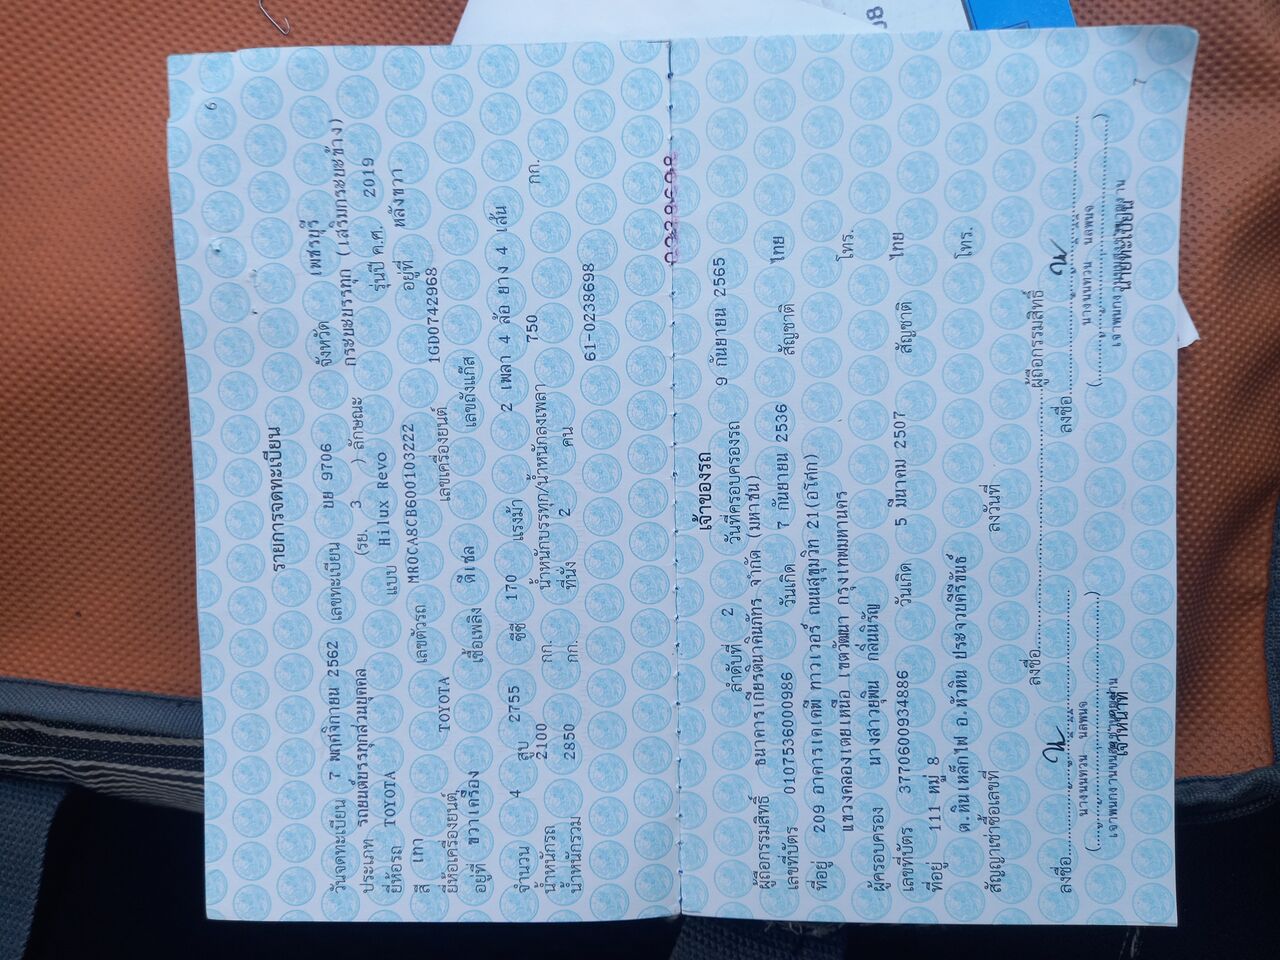 6
รายการจดทะเบียน
วันจดทะเบียน 7 พฤศจิกายน 2562 เลขทะเบียน บย 9706 จังหวัด เพชรบุรี
ประเภท รถยนต์บรรทุกส่วนบุคคล (รย. 3 ) ลักษณะ กระบะบรรทุก (เสริมกระบะข้าง)
ยี่ห้อรถ TOYOTA แบบ Hilux Revo รุ่นปี ค.ศ. 2019
สี เทา เลขตัวรถ MR0CA8CB600103222 อยู่ที่ หลังขวา
ยี่ห้อเครื่องยนต์ TOYOTA เลขเครื่องยนต์ 1GD0742968
อยู่ที่ ขวาเครื่อง เชื้อเพลิง ดีเซล เลขถังแก๊ส
จำนวน 4 สูบ 2755 ซีซี 170 แรงม้า 2 เพลา 4 ล้อ ยาง 4 เส้น
น้ำหนักรถ 2100 กก. น้ำหนักบรรทุก/น้ำหนักลงเพลา 750 กก.
น้ำหนักรวม 2850 กก. ที่นั่ง 2 คน 61-0238698
เจ้าของรถ
ลำดับที่ 2 วันที่ครอบครองรถ 9 กันยายน 2565
ผู้ถือกรรมสิทธิ์ ธนาคารเกียรตินาคินภัทร จำกัด (มหาชน)
เลขที่บัตร 0107536000986 วันเกิด 7 กันยายน 2536 สัญชาติ ไทย
ที่อยู่ 209 อาคารเคเคพี ทาวเวอร์ ถนนสุขุมวิท 21(อโศก)
แขวงคลองเตยเหนือ เขตวัฒนา กรุงเทพมหานคร โทร.
ผู้ครอบครอง นางสาวยุพิน กลิ่นนิรัญ
เลขที่บัตร 3770600934886 วันเกิด 5 มีนาคม 2507 สัญชาติ ไทย
ที่อยู่ 111 หมู่ 8
ต.หินเหล็กไฟ อ.หัวหิน ประจวบคีรีขันธ์ โทร.
สัญญาเช่าซื้อเลขที่ ลงวันที่
ลงชื่อ ผู้ถือกรรมสิทธิ์
ลงชื่อ ลงชื่อ
นางนนทวน นลพนจ นางนนทวน นลพนจ
เจ้าหน้าที่ นายทะเบียน
7